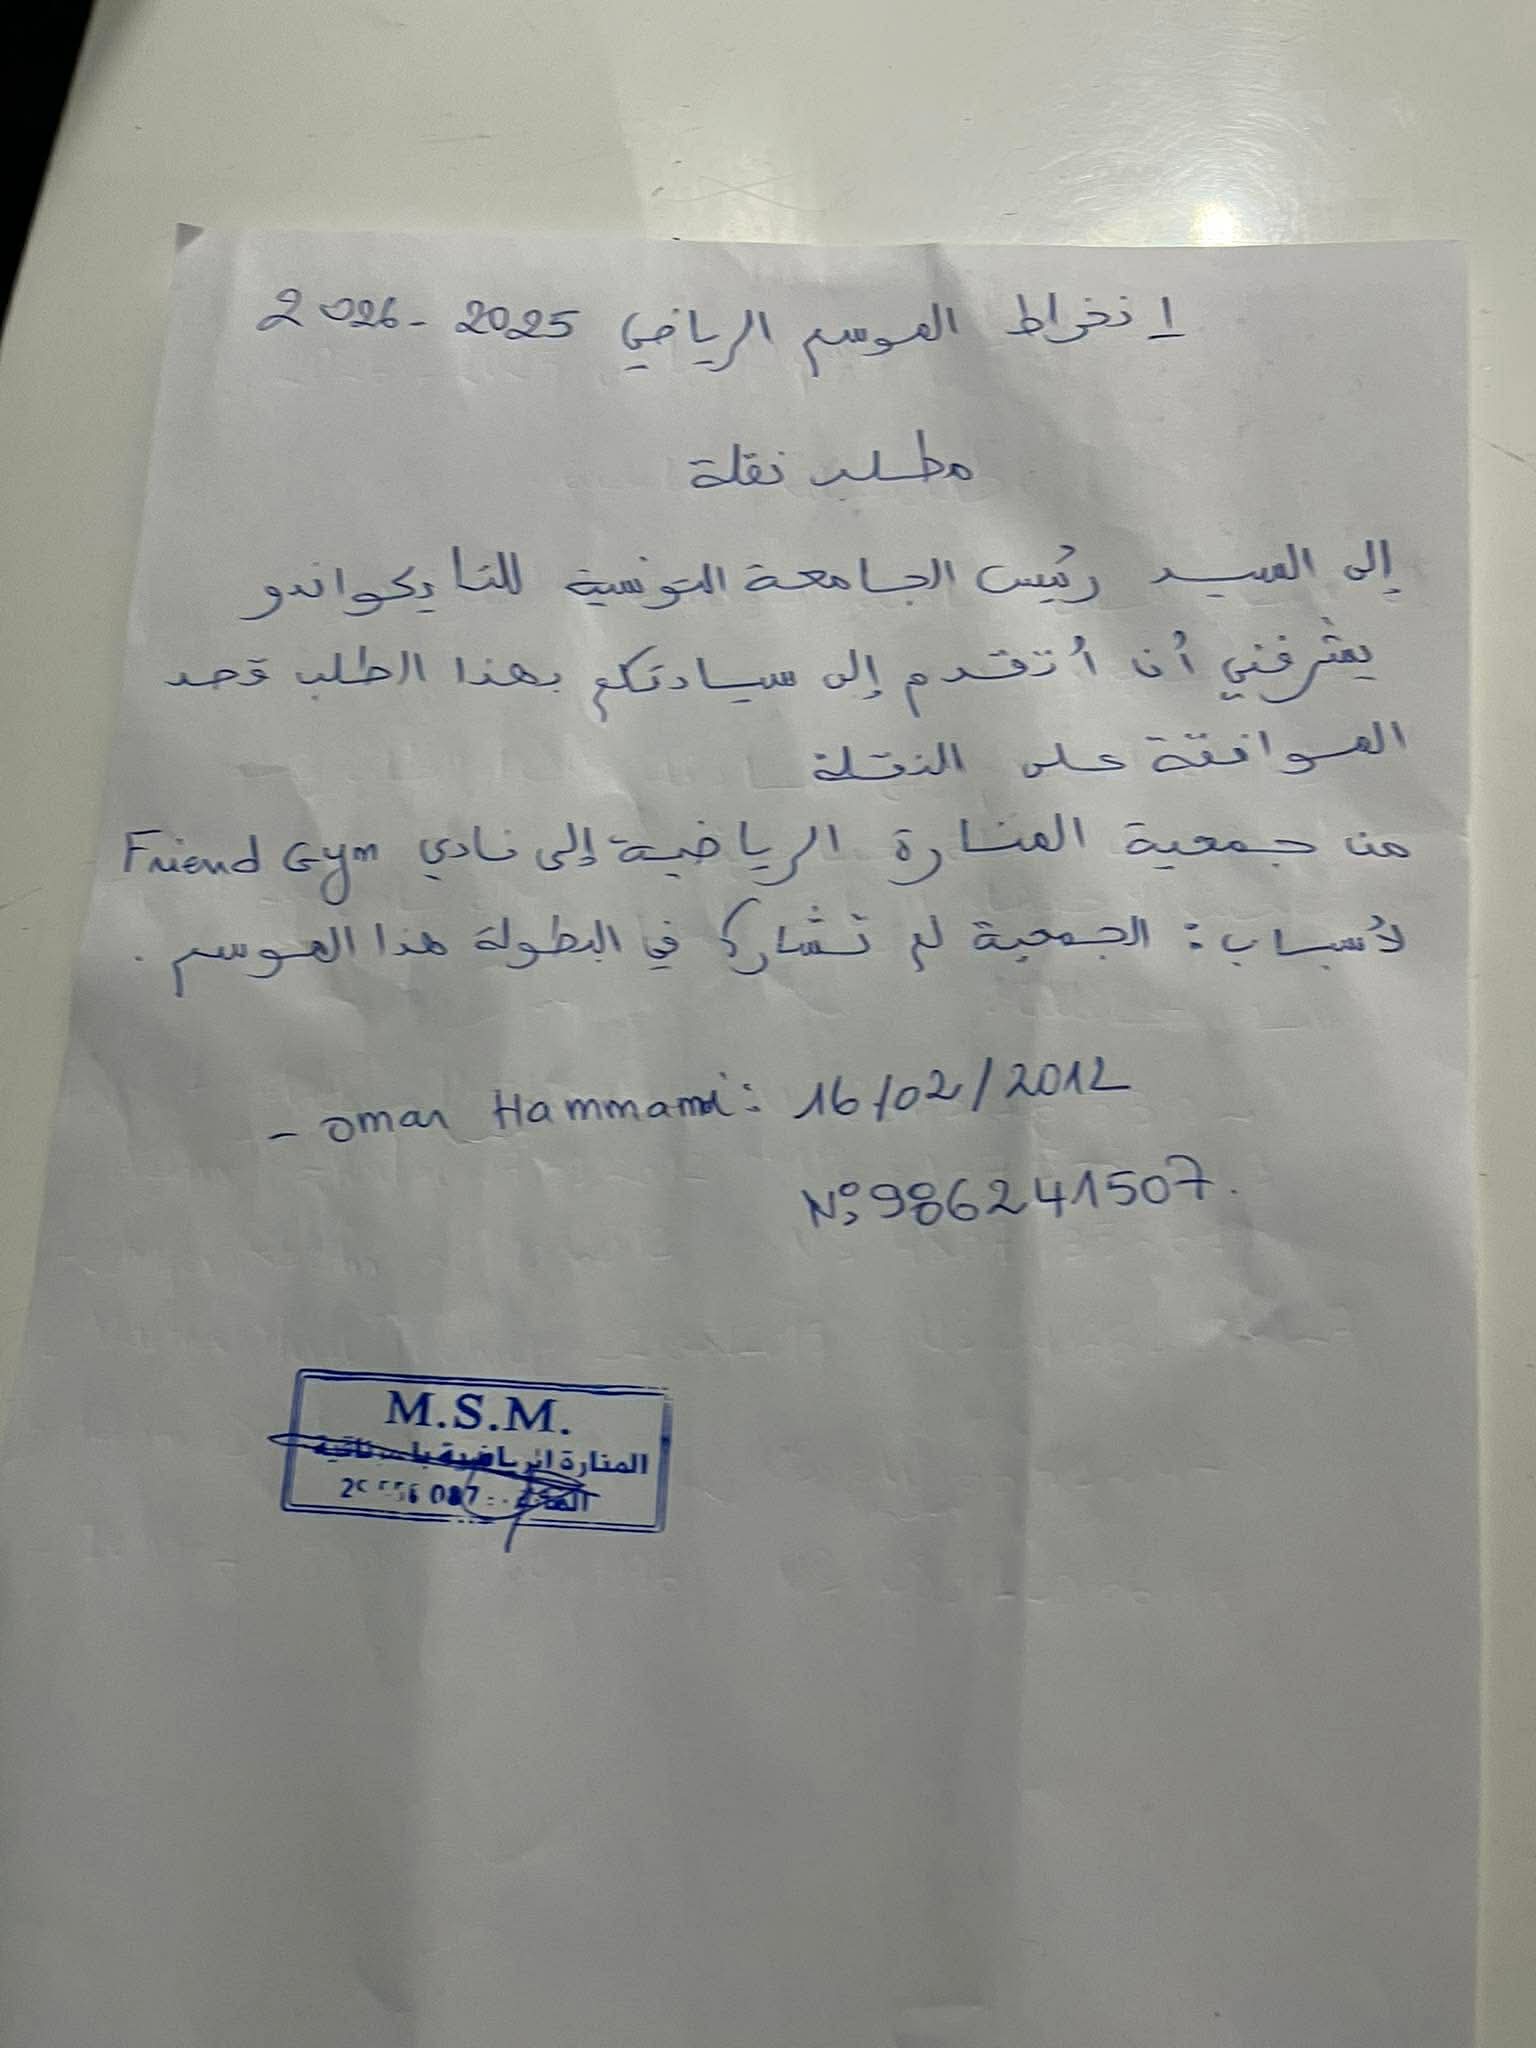 إنخراط الموسم الرياضي 2025 - 2026
مطلب نقلة
إلى السيد رئيس الجامعة التونسية للتايكواندو
يشرفني أن أتقدم إلى سيادتكم بهذا الطلب قصد
الموافقة على النقلة
من جمعية المنارة الرياضية إلى نادي Friend Gym
لأسباب: الجمعية لم تشارك في البطولة هذا الموسم.
- Omar Hammami: 16/02/2012
N°: 986241507.
M.S.M.
المنارة الرياضية
087